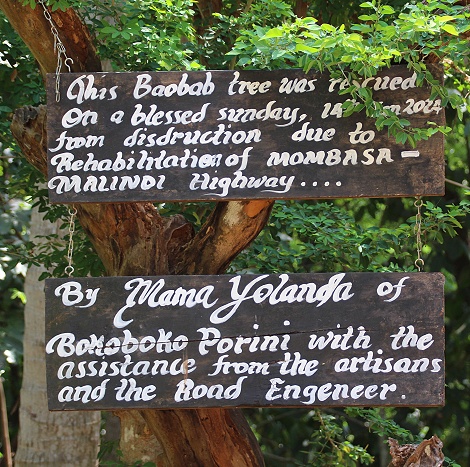 This Baobab tree was rescued
On a blessed sunday, 14 Jan 2024
from disdruction due to
Rehabilitation of MOMBASA –
MALINDI Highway....
By Mama Yolanda of
Bokoboko Porini with the
assistance from the artisans
and the Road Engeneer.